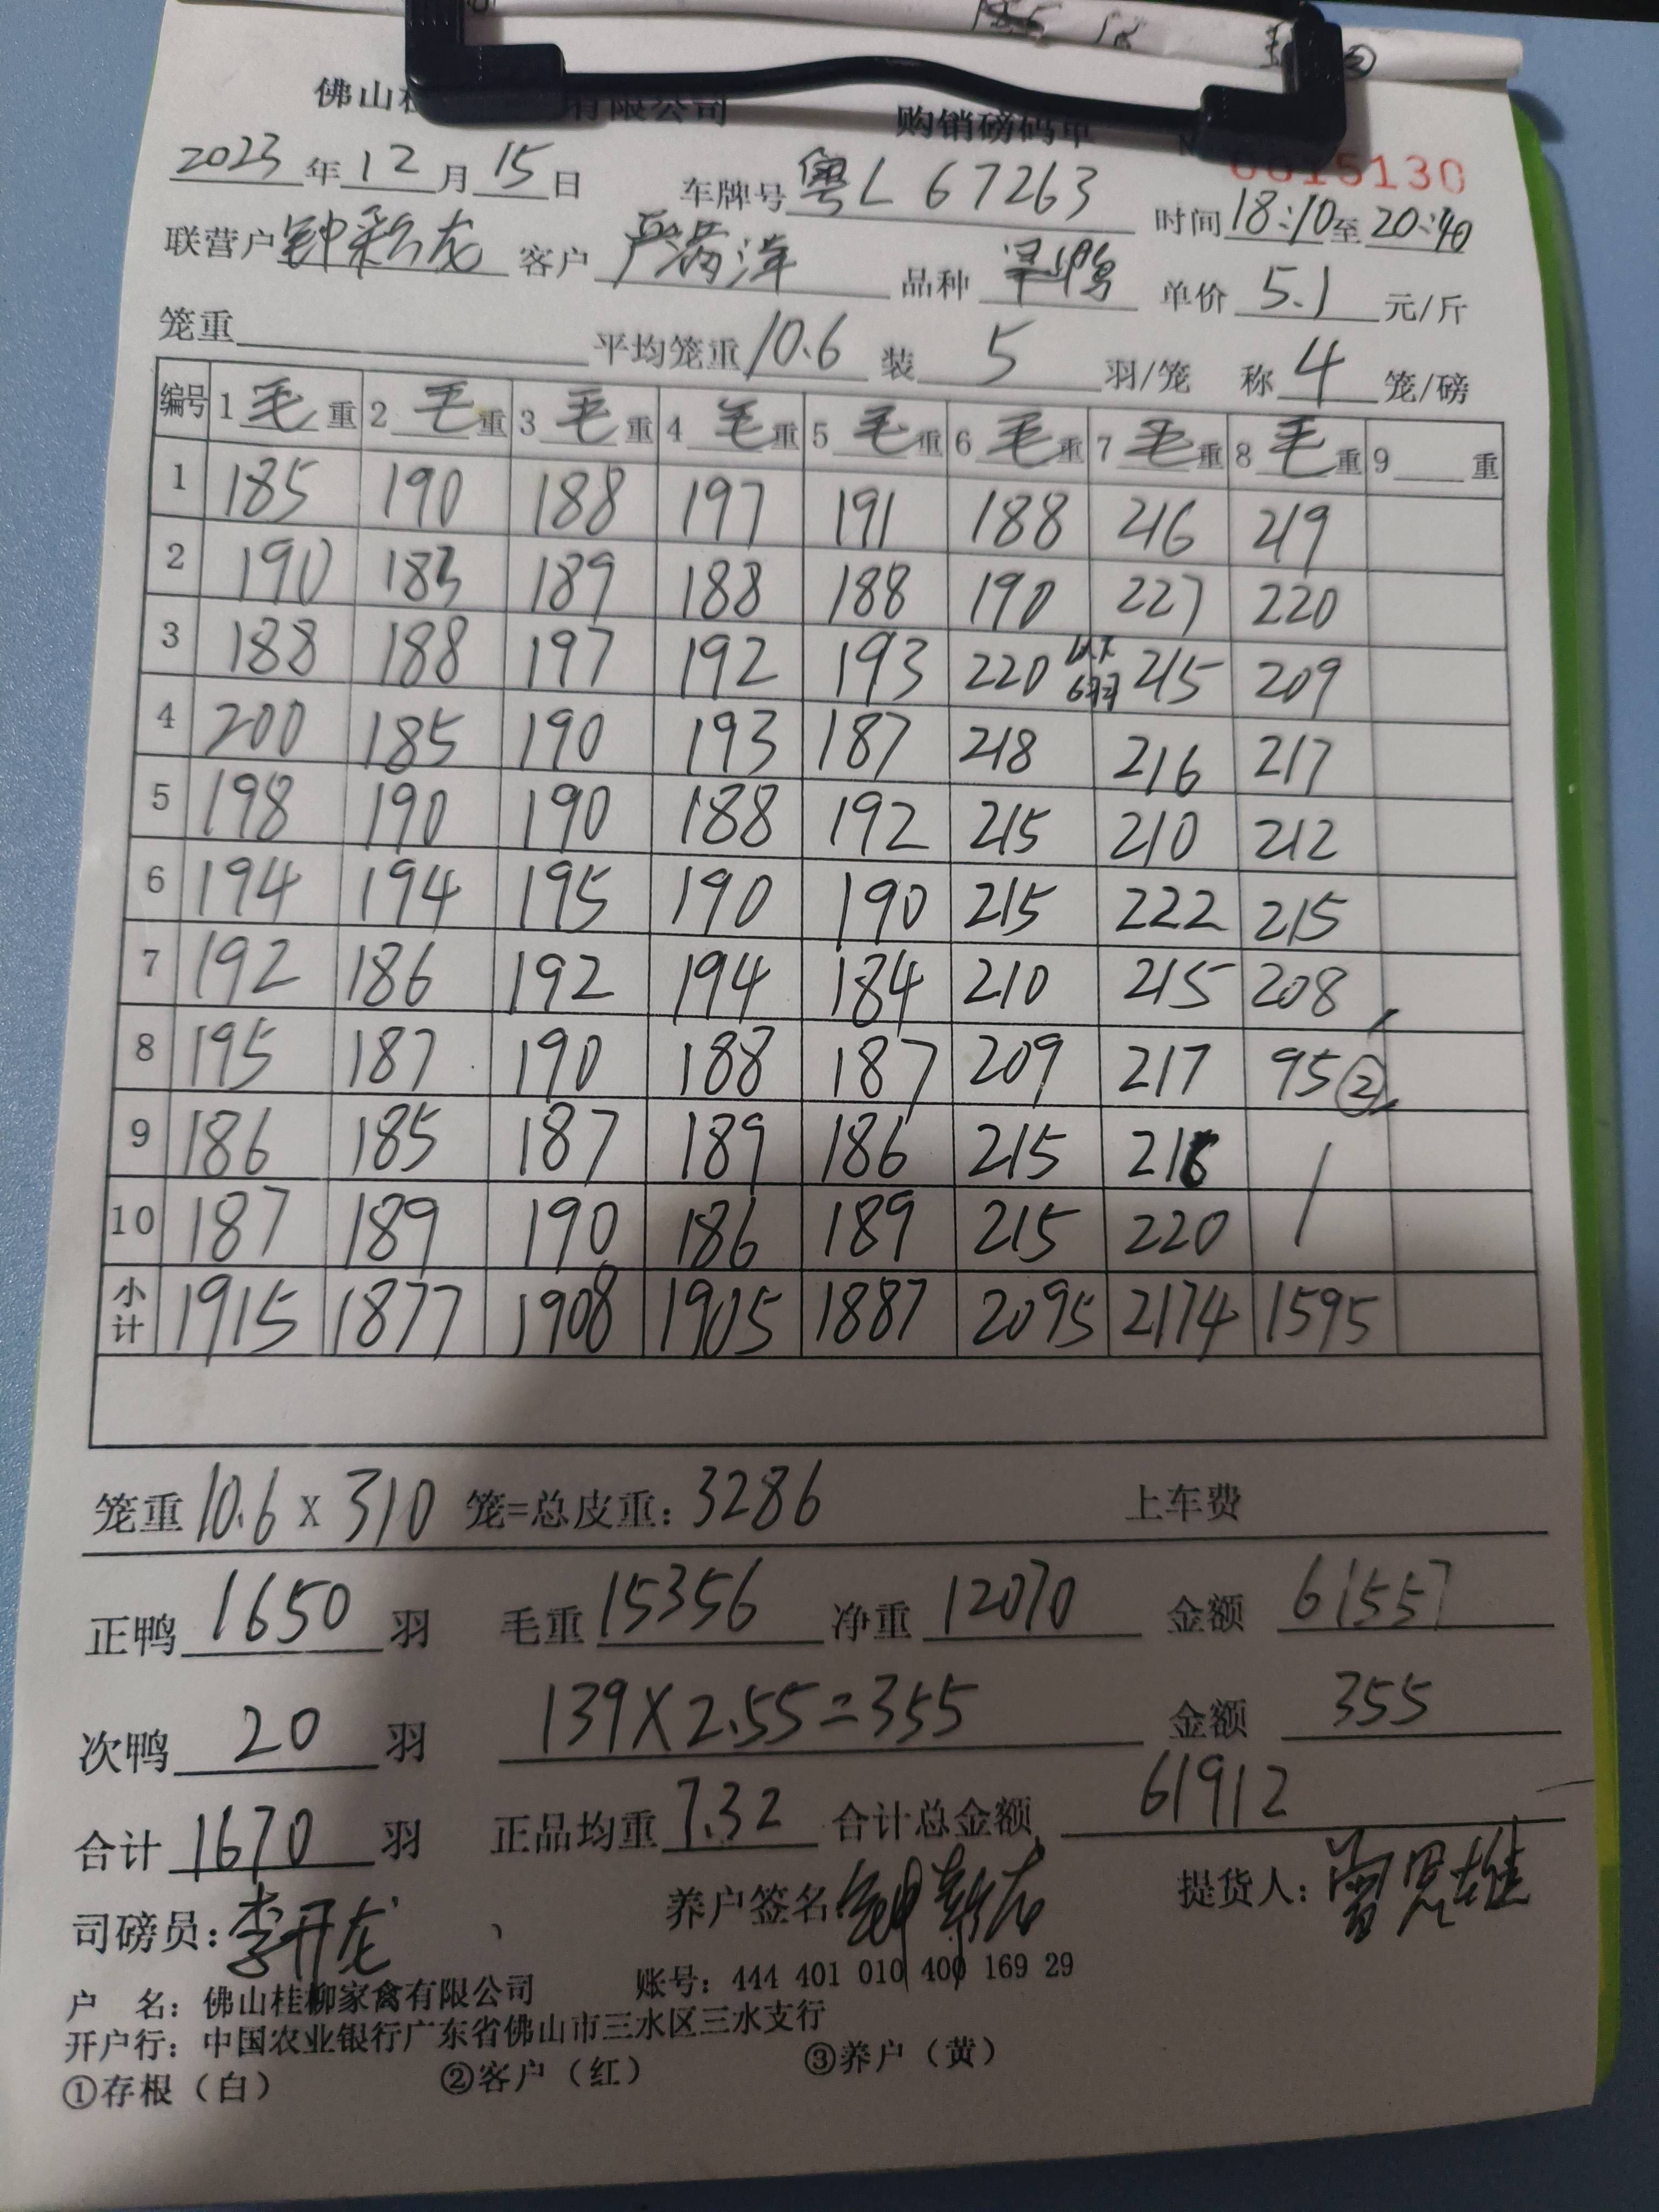 佛山 有限公司 购销磅码单
0015130
2023年12月15日 车牌号粤L67263 时间18:10至20:40
联营户钟 龙 客户严 洋 品种 鸭 单价5.1元/斤
笼重 平均笼重10.6 装5羽/笼 称4笼/磅
编号 1毛重 2毛重 3毛重 4毛重 5毛重 6毛重 7毛重 8毛重 9重
1 185 190 188 197 191 188 216 219
2 190 183 189 188 188 190 227 220
3 188 188 197 192 193 220 以下6羽 215 209
4 200 185 190 193 187 218 216 217
5 198 190 190 188 192 215 210 212
6 194 194 195 190 190 215 222 215
7 192 186 192 194 184 210 215 208
8 195 187 190 188 187 209 217 95②
9 186 185 187 189 186 215 216 /
10 187 189 190 186 189 215 220
小计 1915 1877 1908 1905 1887 2095 2174 1595
笼重10.6x310笼=总皮重:3286 上车费
正鸭1650羽 毛重15356 净重12070 金额61557
次鸭20羽 139X2.55=355 金额355
合计1670羽 正品均重7.32 合计总金额61912
司磅员:李开龙 养户签名: 提货人:
户 名:佛山桂柳家禽有限公司 账号:444 401 010 400 169 29
开户行:中国农业银行广东省佛山市三水区三水支行
①存根(白) ②客户(红) ③养户(黄)